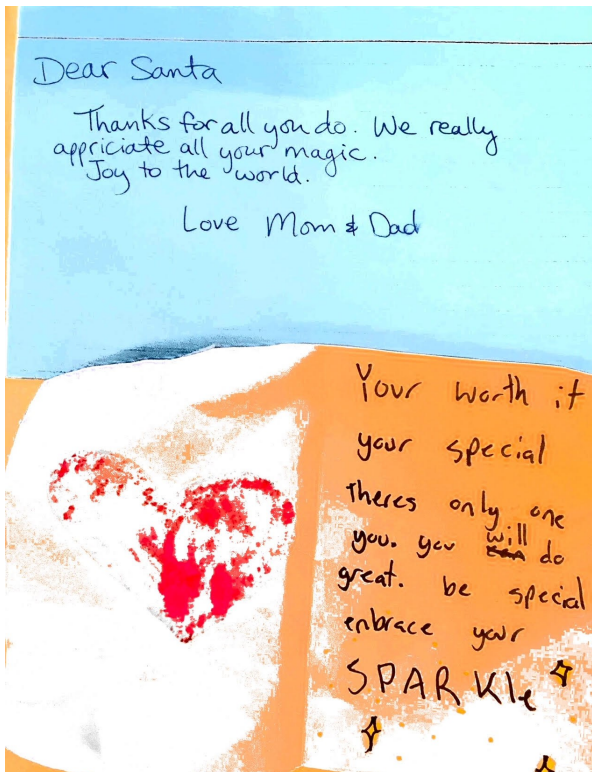 Dear Santa
Thanks for all you do. We really
appriciate all your magic.
Joy to the world.
Love Mom & Dad
Your worth it
your special
theres only one
you. you will do
great. be special
enbrace your
SPARKle